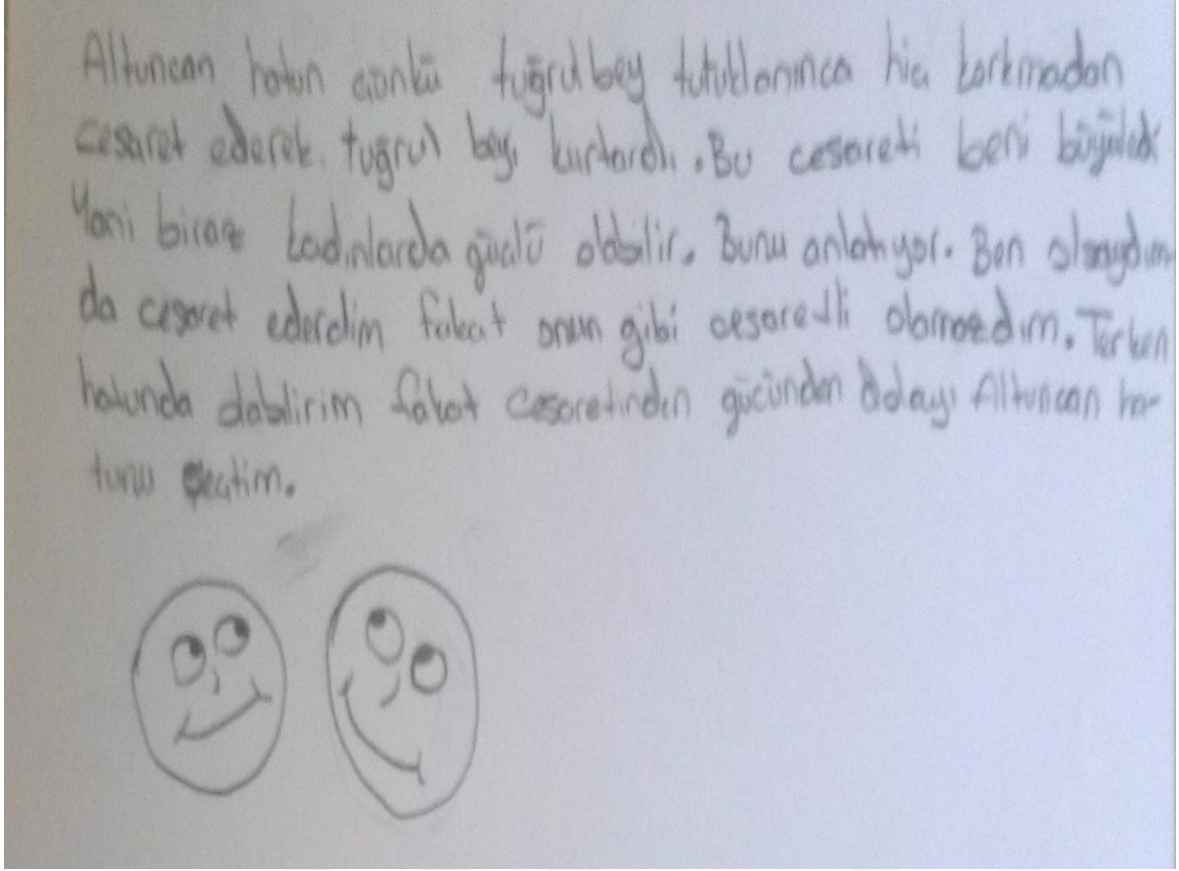 Altuncan hatun çünkü tuğrul bey tutuklanınca hiç korkmadan
cesaret ederek tuğrul beyi kurtardı. Bu cesareti beni büyüledi
Yani biraz kadınlarda güçlü olabilir. Bunu anlatıyor. Ben olsaydım
da cesaret ederdim fakat onun gibi cesaretli olamazdım. Terken
hatunda olabilirim fakat cesaretinden gücünden dolayı Altuncan ha-
tunu seçtim.